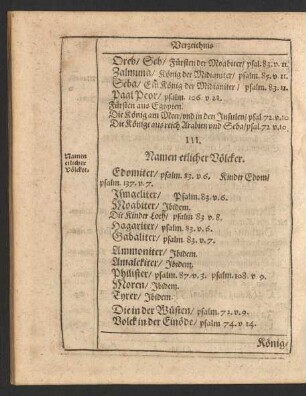 Verzeichnis
Oreb/ Seb/ Fürsten der Moabiter/ psal. 83. v. 11.
Zalmuna/ König der Midianiter/ psalm. 83. v. 11.
Seba/ Ein König der Midianiter/ psalm. 83. 11.
Baal Peor/ psalm. 106 v 28.
Fürsten aus Egypten.
Die König am Meer/ und in den Insulen/ psal 72. v. 10.
Die Könige aus reich Arabien und Seba/ psal. 72 v. 10.
III.
Namen etlicher Völcker.
Namen
etlicher
Völcker.
Edomiter/ psalm. 83. v. 6. Kinder Edom/
psalm. 137. v. 7.
Ismaeliter/ Psalm. 83. v. 6.
Moabiter/ Ibidem.
Die Kinder Loth/ psalm 83 v. 8.
Hagariter/ psalm. 83. v. 6.
Gabaliter/ psalm. 83. v. 7.
Ammoniter/ Ibidem.
Amalekiter/ Ibidem.
Philister/ psalm. 87. v. 3. psalm. 108. v 9.
Moren/ Ibidem.
Tyrer/ Ibidem.
Die in der Wüsten/ psalm. 72. v. 9.
Volck in der Einöde/ psalm 74. v 14.
König/